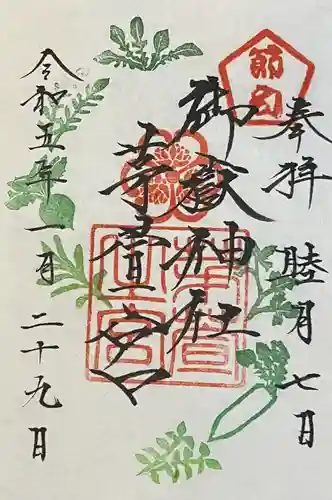 節句
奉拝
睦月七日
御嶽神社
茅萱宮
令和五年一月二十九日